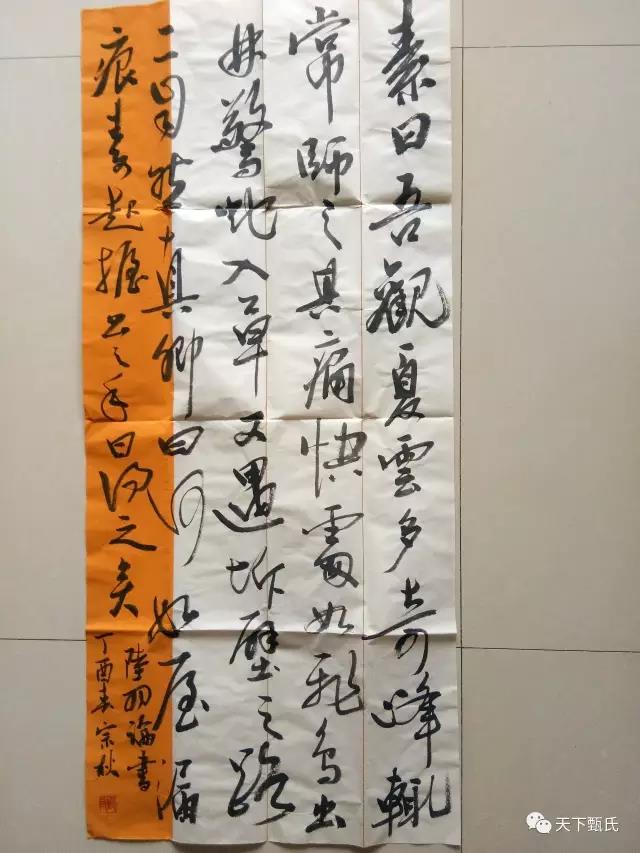 素曰吾觀夏雲多奇峰輒
常師之其痛快處如飛鳥出
林驚虵入草又遇坼壁之路
一一自然真卿曰何如屋漏
痕素起握公之手曰得之矣
陸羽論書
丁酉春宗秋
天下甄氏